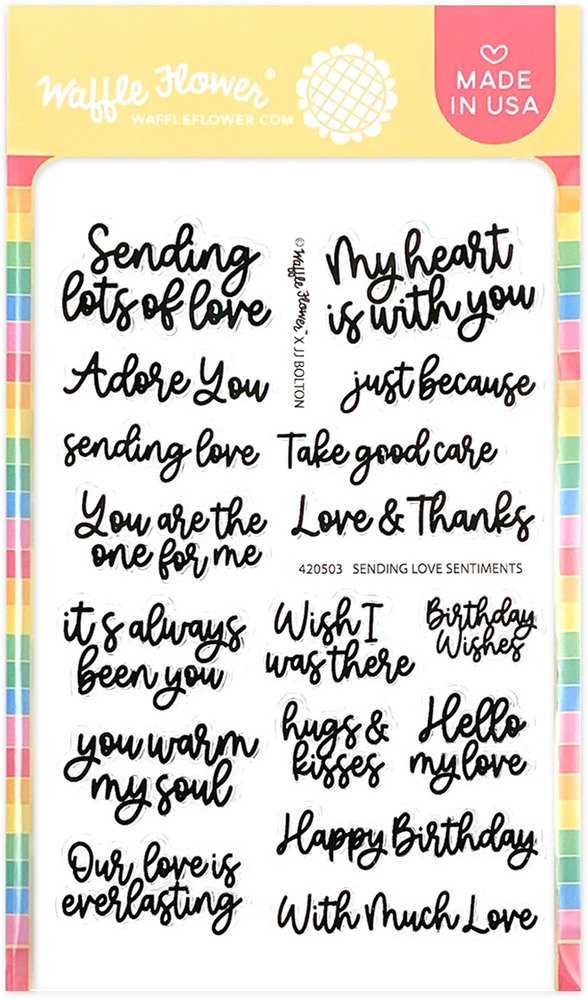 Waffle Flower®
WAFFLEFLOWER.COM
MADE
IN USA
Sending
lots of love
© Waffle Flower™ X JJ BOLTON
My heart
is with you
Adore You
just because
sending love
Take good care
You are the
one for me
Love & Thanks
420503 SENDING LOVE SENTIMENTS
it's always
been you
Wish I
was there
Birthday
Wishes
you warm
my soul
hugs &
kisses
Hello
my love
Happy Birthday
Our love is
everlasting
With Much Love